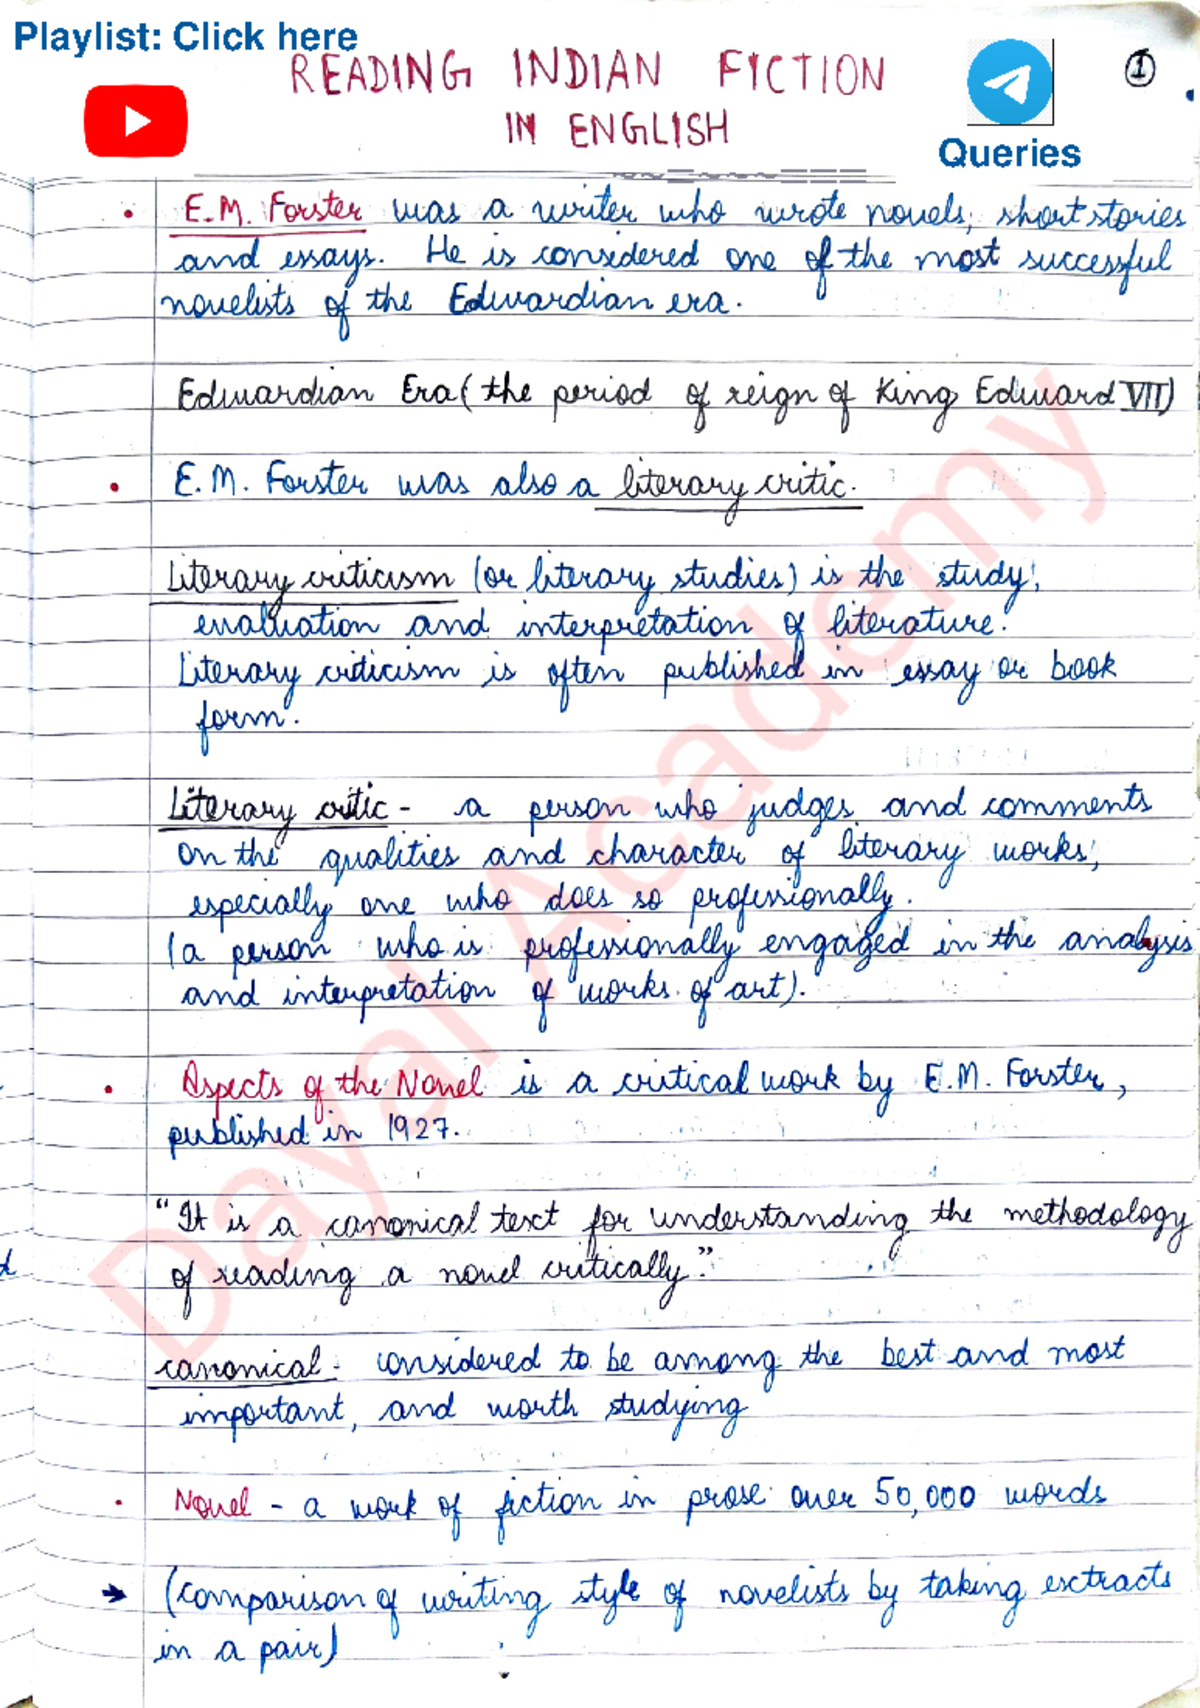 Playlist: Click here
READING INDIAN FICTION
IN ENGLISH
1
Queries
• E.M. Forster was a writer who wrote novels, short stories
and essays. He is considered one of the most successful
novelists of the Edwardian era.
Edwardian Era (the period of reign of King Edward VII)
• E.M. Forster was also a literary critic.
Literary criticism (or literary studies) is the study,
evaluation and interpretation of literature.
Literary criticism is often published in essay or book
form.
Literary critic - a person who judges and comments
on the qualities and character of literary works,
especially one who does so professionally.
(a person who is professionally engaged in the analysis
and interpretation of works of art).
• Aspects of the Novel is a critical work by E.M. Forster,
published in 1927.
"It is a canonical text for understanding the methodology
of reading a novel critically."
canonical - considered to be among the best and most
important, and worth studying
• Novel - a work of fiction in prose over 50,000 words
→ (comparison of writing style of novelists by taking extracts
in a pair)
Dayal Academy